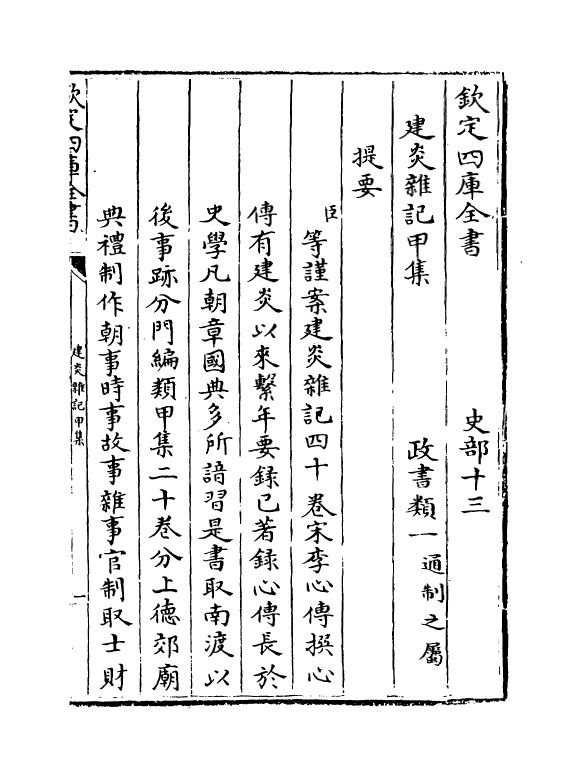 欽定四庫全書 史部十三
建炎雜記甲集 政書類一 通制之屬
提要
臣等謹案建炎雜記四十卷宋李心傳撰心
傳有建炎以來繫年要錄已著錄心傳長於
史學凡朝章國典多所諳習是書取南渡以
後事跡分門編類甲集二十卷分上德郊廟
典禮制作朝事時事故事雜事官制取士財
欽定四庫全書
建炎雜記甲集
一